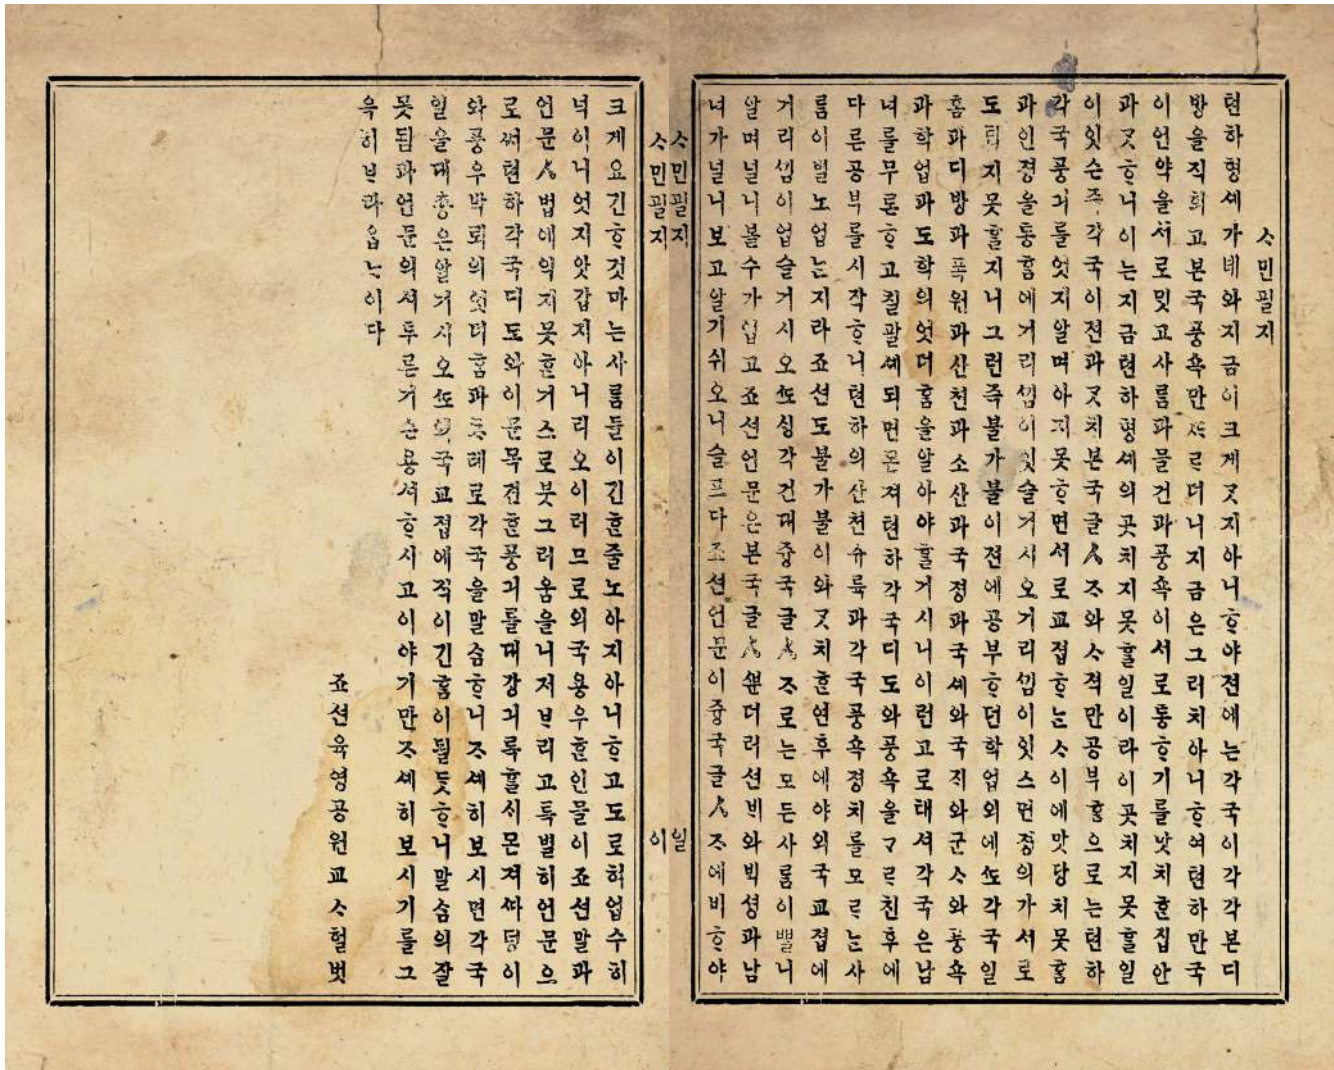 ᄉᆞ민필지
텬하형셰가녜와지금이크게ᄀᆞᆺ지아니ᄒᆞ야젼에는각국이각각본디
방을직희고본국풍쇽만ᄯᆞ르더니지금은그러치아니ᄒᆞ여텬하만국
이언약을서로밋고사ᄅᆞᆷ과물건과풍쇽이서로통ᄒᆞ기를맛치ᄒᆞᆫ집안
과ᄀᆞᆺᄒᆞ니이는지금텬하형셰의곳치지못ᄒᆞᆯ일이라이곳치지못ᄒᆞᆯ일
이잇슨즉각국이젼과ᄀᆞᆺ치본국글ㅅᄌᆞ와ᄉᆞ젹만공부ᄒᆞᆷ으로는텬하
각국풍긔를엇지알며아지못ᄒᆞ면서로교졉ᄒᆞ는ᄉᆞ이에맛당치못ᄒᆞᆷ
과인졍을통ᄒᆞᆷ에거리ᄭᅵᆷ이잇슬거시오거리ᄭᅵᆷ이잇스면졍의가서로
도탑지못ᄒᆞᆯ지니그런즉불가불이젼에공부ᄒᆞ던학업외에ᄯᅩ각국일
홈과디방과폭원과산쳔과소산과국졍과국셰와국ᄌᆡ와군ᄉᆞ와풍쇽
과학업과도학의엇더홈을알아야ᄒᆞᆯ거시니이런고로태셔각국은남
녀를무론ᄒᆞ고칠팔셰되면몬져텬하각국디도와풍쇽을ᄀᆞᄅᆞ친후에
다른공부를시작ᄒᆞ니텬하의산쳔슈륙과각국풍쇽졍치를모ᄅᆞ는사
ᄅᆞᆷ이별노업는지라죠션도불가불이와ᄀᆞᆺ치ᄒᆞᆫ연후에야외국교졉에
거리ᄭᅵᆷ이업슬거시오ᄯᅩᄉᆡᆼ각건대즁국글ㅅᄌᆞ로는모든사ᄅᆞᆷ이ᄲᆞᆯ니
알며널니볼수가업고죠션언문은본국글ㅅᄲᅮᆫ더러션ᄇᆡ와ᄇᆡᆨ셩과남
녀가널니보고알기쉬오니슬프다죠션언문이즁국글ㅅᄌᆞ에비ᄒᆞ야
ᄉᆞ민필지 일
ᄉᆞ민필지 이
크게요긴ᄒᆞᆫ것마는사ᄅᆞᆷ들이긴ᄒᆞᆫ줄노아지아니ᄒᆞ고도로혀업수히
넉이니엇지앗갑지아니리오이러므로외국용우ᄒᆞᆫ인물이죠션말과
언문ㅅ법에익지못ᄒᆞᆫ거스로붓그러움을니저ᄇᆞ리고특별히언문으
로써텬하각국디도와이문목견ᄒᆞᆫ풍긔를대강긔록ᄒᆞᆯᄉᆡ몬져ᄯᅡ덩이
와풍우박뢰의엇더ᄒᆞᆷ과ᄎᆞ례로각국을말ᄉᆞᆷᄒᆞ니ᄌᆞ셰히보시면각국
일을대총은알거시오ᄯᅩ외국교졉에적이긴ᄒᆞᆷ이될ᄃᆞᆺᄒᆞ니말ᄉᆞᆷ의잘
못됨과언문의셔투른거슨용셔ᄒᆞ시고이야기만ᄌᆞ셰히보시기를그
윽히ᄇᆞ라ᄋᆞᆸᄂᆞ이다
죠션육영공원교ᄉᆞ헐벗